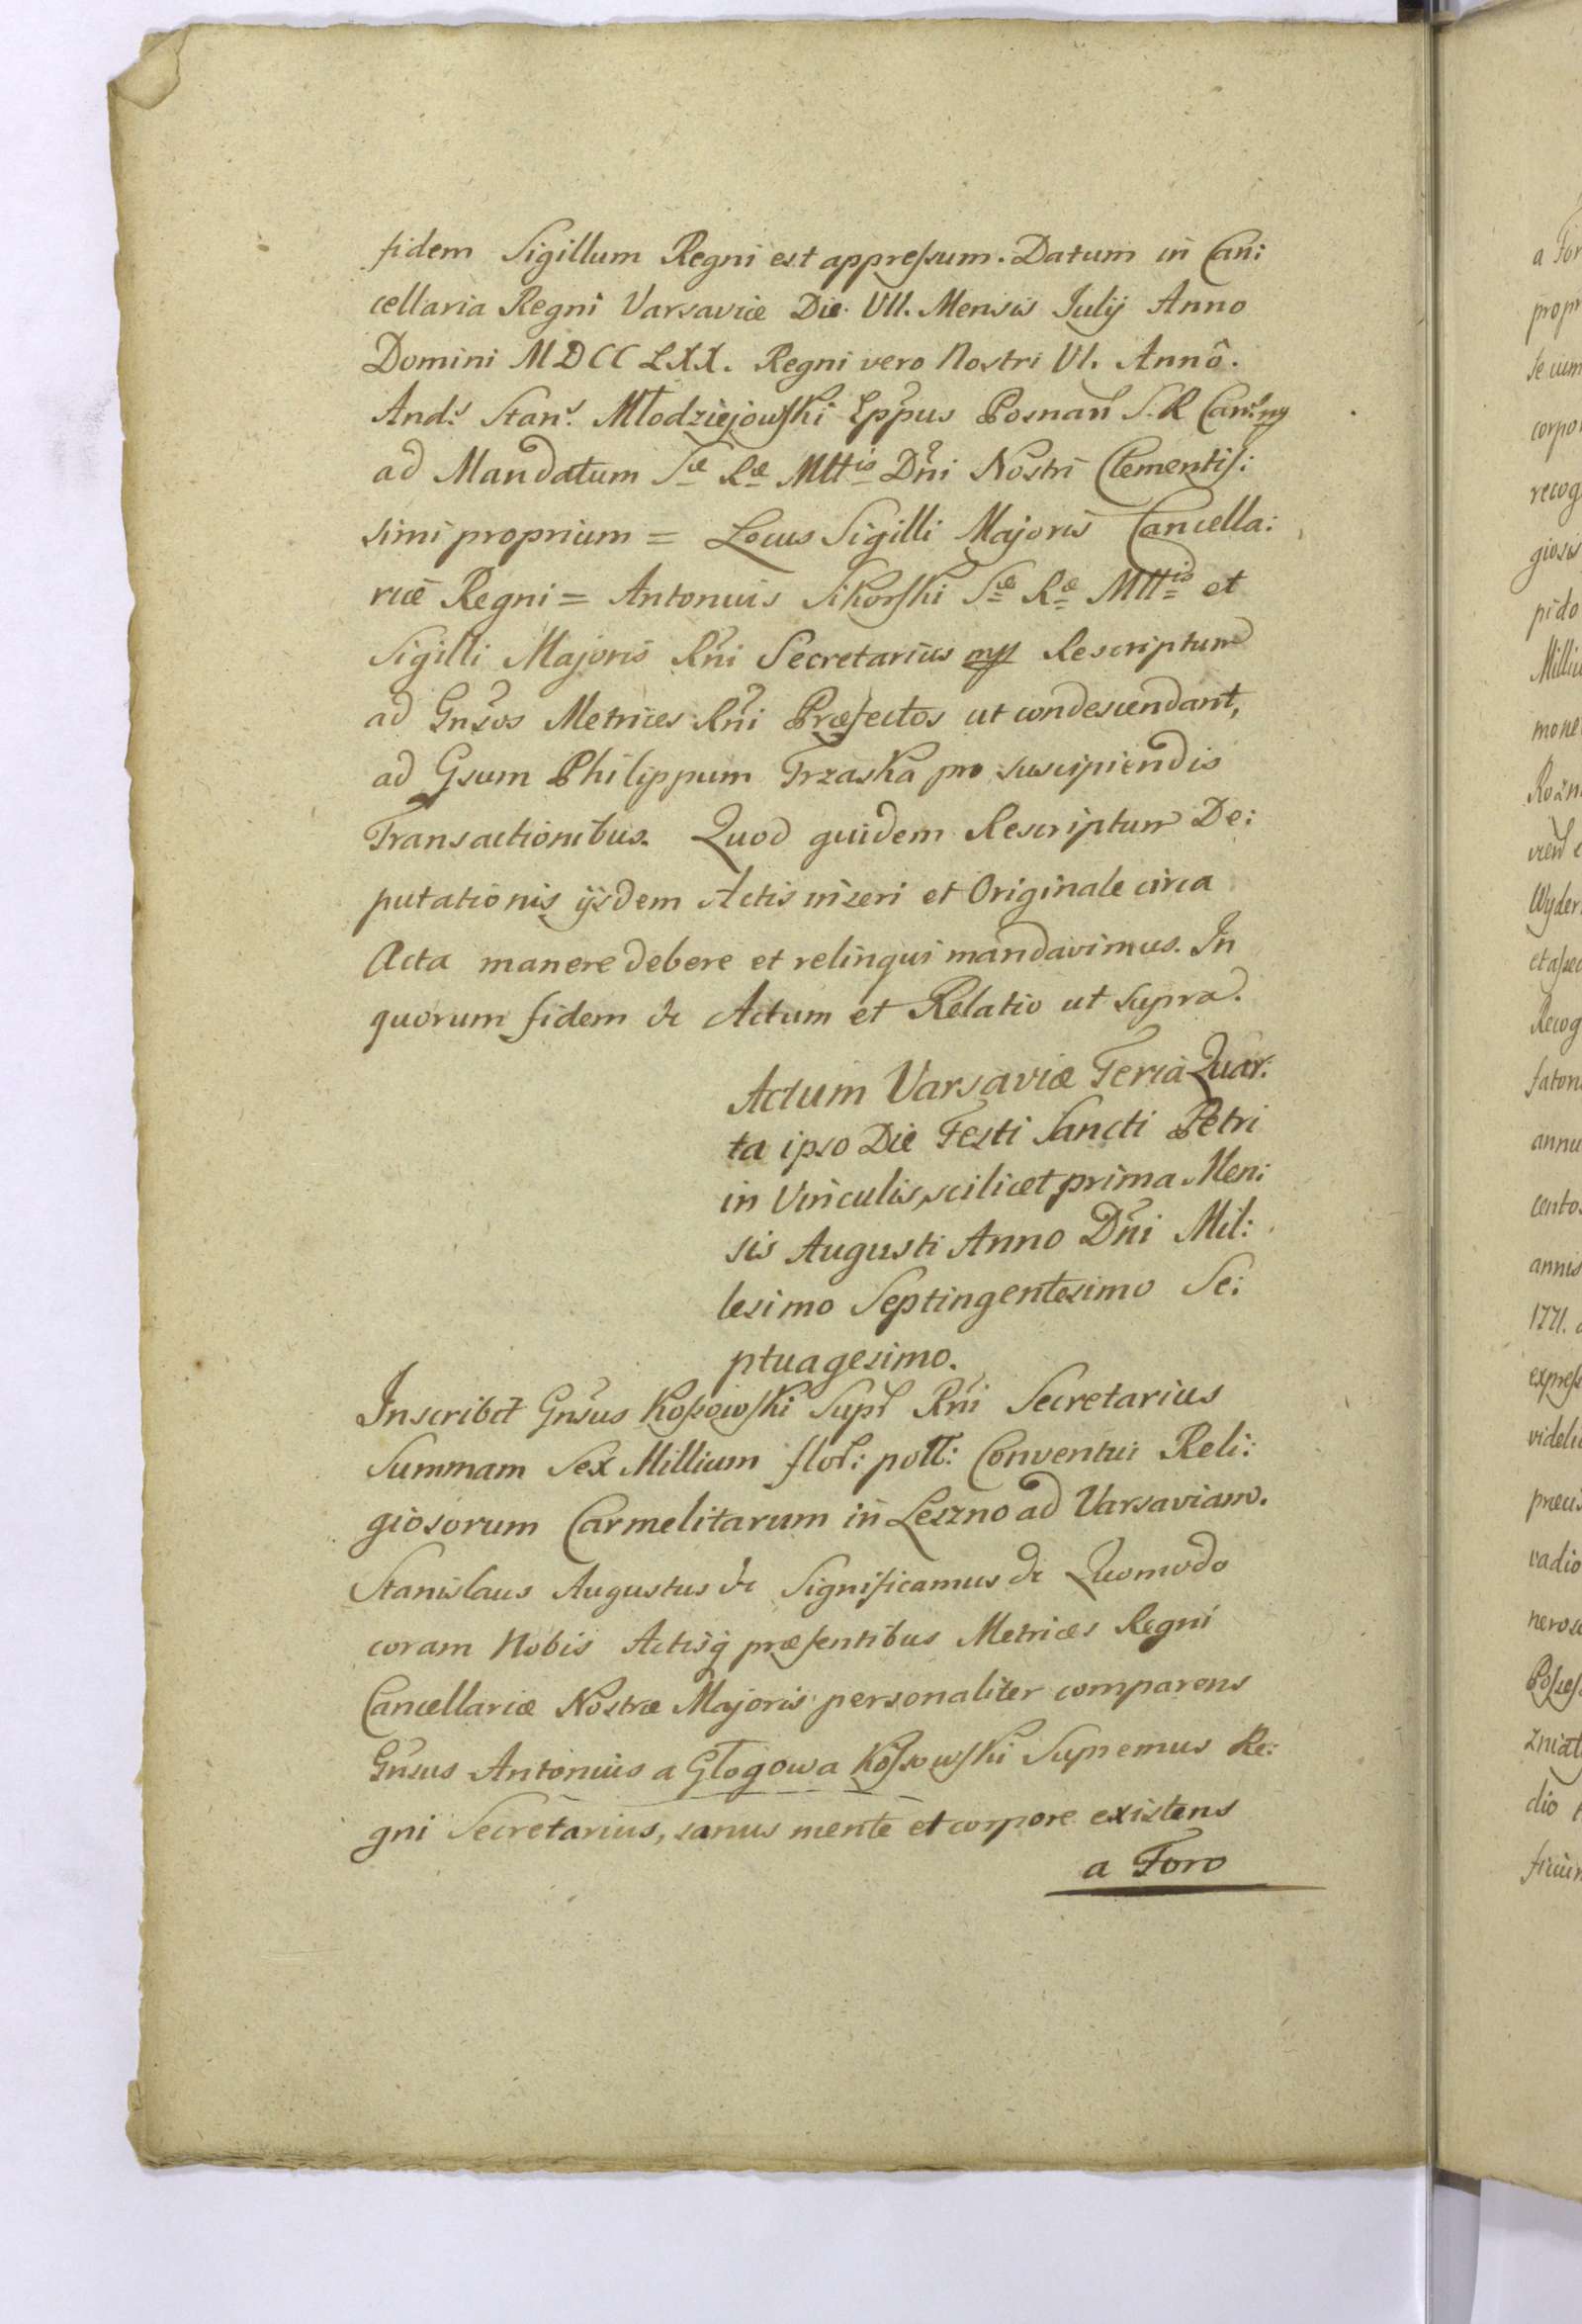 fidem Sigillum Regni est appreſsum. Datum in Can:
cellaria Regni Varsaviæ Die VII. Mensis Julij Anno
Domini MDCCLXX. Regni vero Nostri VI. Annô.
And: Stan: Młodziejowſki Eppus Posnan S. R Canc: mp
ad Mandatum Sæ Ræ Mttis Dni Nostri Clementiſ:
simi proprium = Locus Sigilli Majoris Cancella:
riæ Regni = Antonius Sikorſki Sæ Ræ Mttis et
Sigilli Majoris Rni Secretarius mp Rescriptum
ad Gnsos Metrices Rni Præfectos ut condescendant,
ad Gsum Philippum Trzaska pro suscipiendis
Transactionibus. Quod quidem Rescriptum De:
putationis ijsdem Actis inseri et Originale circa
Acta manere debere et relinqui mandavimus. In
quorum fidem &c Actum et Relatio ut supra.
Actum Varsaviæ Feria Quar:
ta ipso Die Festi Sancti Petri
in Vinculis, scilicet prima Men:
sis Augusti Anno Dni Mil:
lesimo Septingentesimo Se:
ptuagesimo.
Inscribit Gnsus Koſsowſki Supr Rni Secretarius
Summam Sex Millium flor: poll: Conventui Reli:
giosorum Carmelitarum in Leszno ad Varsaviam.
Stanislaus Augustus &c Significamus &c Quomodo
coram Nobis Actisq præſentibus Metrices Regni
Cancellariæ Nostræ Majoris personaliter comparens
Gnsus Antonius a Głogowa Koſsowſki Supremus Re:
gni Secretarius, sanus mente et corpore existens
a Foro